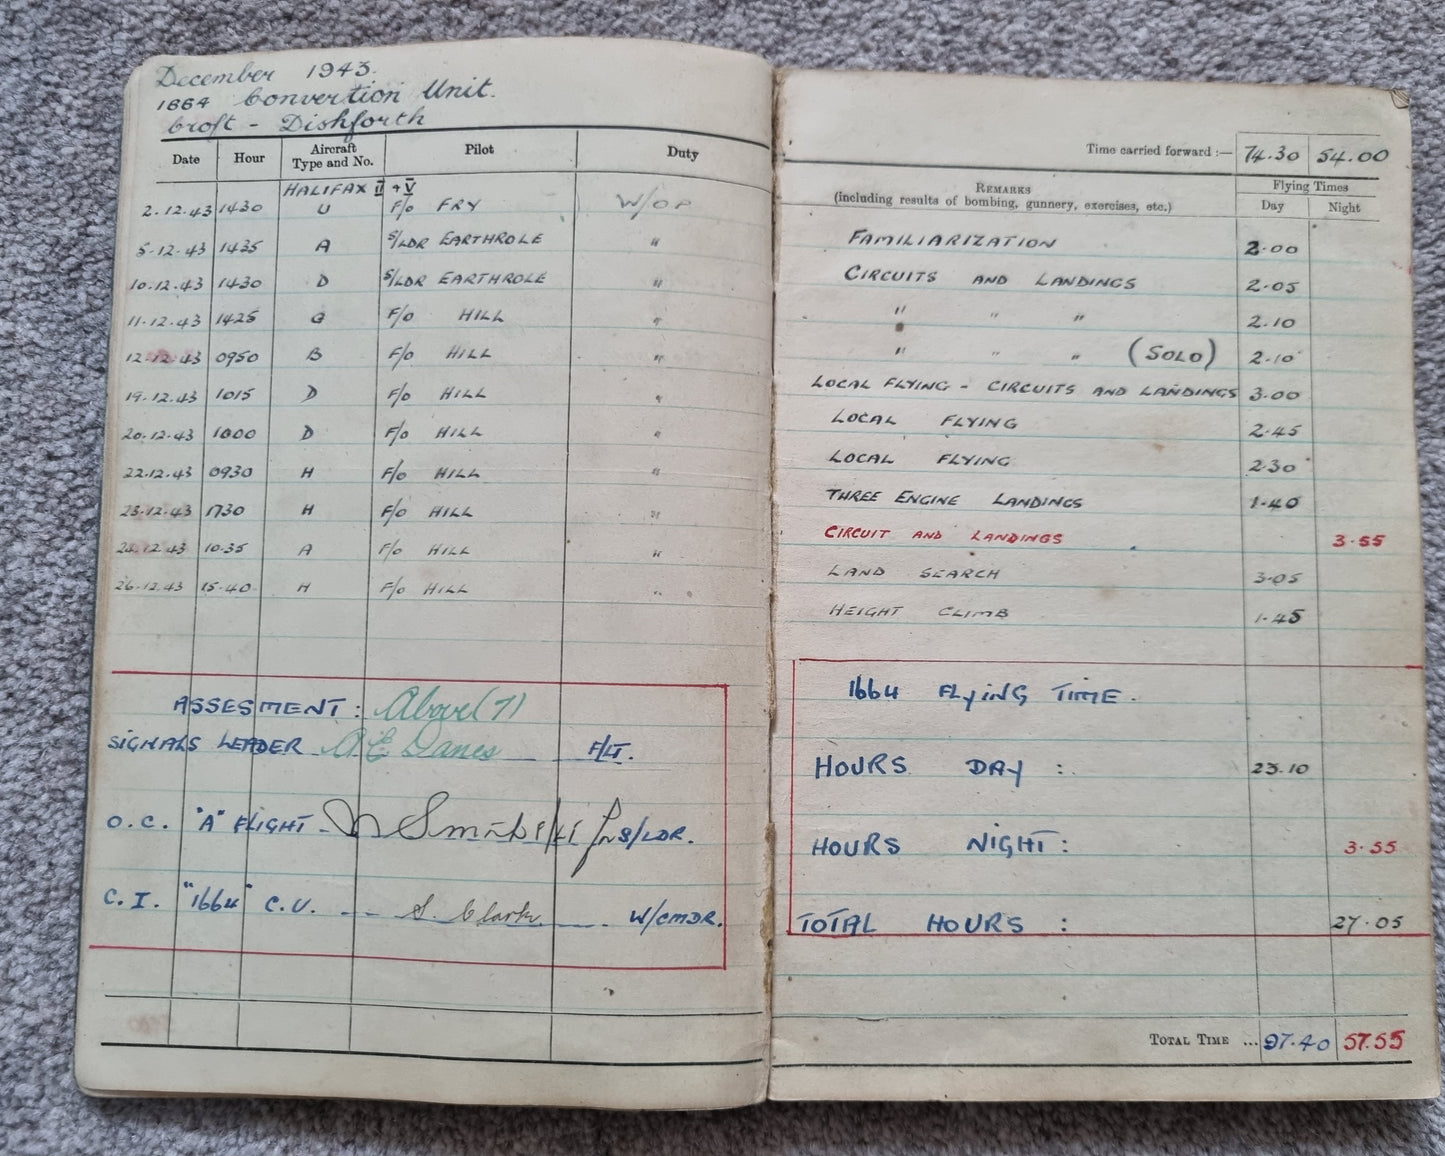 December 1943.
1664 Convertion Unit.
Croft - Dishforth
Date Hour Aircraft Type and No. Pilot Duty
HALIFAX II + V
2.12.43 1430 U F/o FRY W/OP
5.12.43 1435 A S/LDR EARTHROLE "
10.12.43 1430 D S/LDR EARTHROLE "
11.12.43 1425 G F/o HILL "
12.12.43 0950 B F/o HILL "
19.12.43 1015 D F/o HILL "
20.12.43 1000 D F/o HILL "
22.12.43 0930 H F/o HILL "
23.12.43 1730 H F/o HILL "
12.43 10.35 A F/o HILL "
26.12.43 15.40 H F/o HILL "
ASSESMENT: Above (7)
SIGNALS LEADER F/LT.
O.C. "A" FLIGHT - F/Lt for S/LDR.
C.I. "1664" C.U. -- S. Clark --. W/CMDR.
Time carried forward :— 74.30 54.00
REMARKS
(including results of bombing, gunnery, exercises, etc.)
Flying Times
Day Night
FAMILIARIZATION 2.00
CIRCUITS AND LANDINGS 2.05
" " " 2.10
" " " (SOLO) 2.10
LOCAL FLYING - CIRCUITS AND LANDINGS 3.00
LOCAL FLYING 2.45
LOCAL FLYING 2.30
THREE ENGINE LANDINGS 1.40
CIRCUIT AND LANDINGS 3.55
LAND SEARCH 3.05
HEIGHT CLIMB 1.45
1664 FLYING TIME.
HOURS DAY : 23.10
HOURS NIGHT: 3.55
TOTAL HOURS : 27.05
TOTAL TIME ... 97.40 57.55